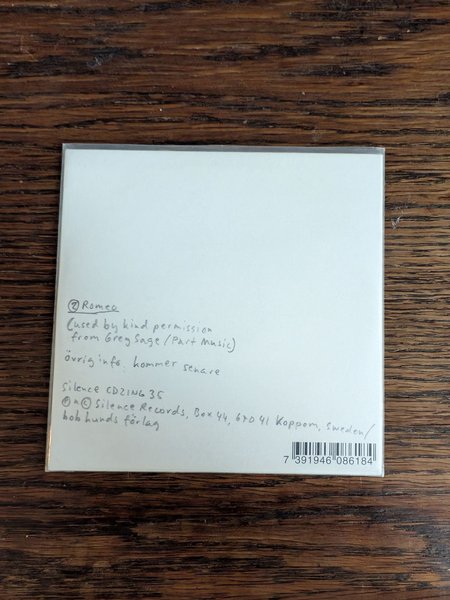 ② Romeo
(used by kind permission
from Greg Sage/Part Music)
övrig info. kommer senare
Silence CDZING 35
℗ n © Silence Records, Box 44, 670 41 Koppom, Sweden/
bob hunds förlag
7 391946 086184